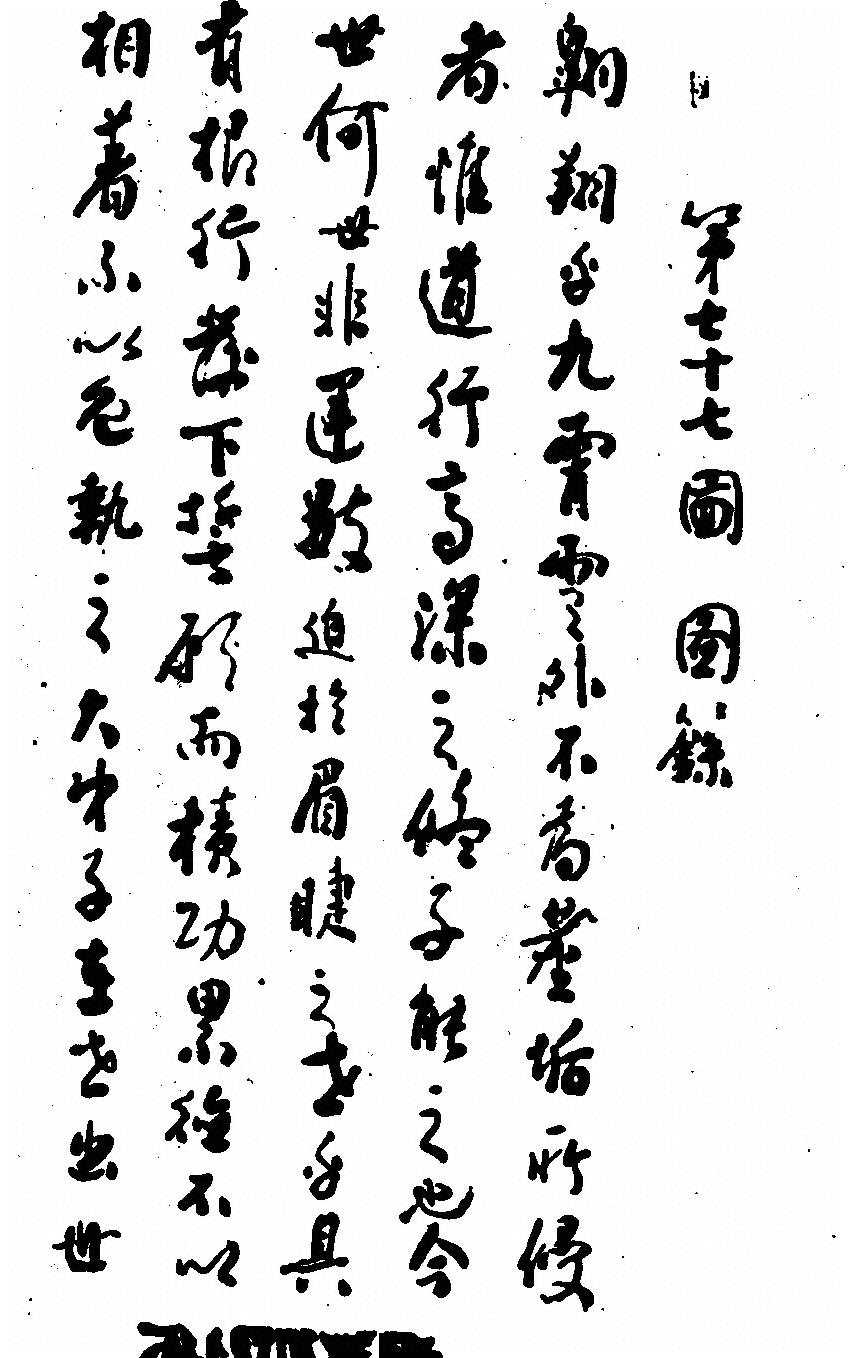 第七十七圖 圖籙
翱翔乎九霄雲外不為塵垢所侵
者惟道行高深之修子能之也今
世何世非運數迫於眉睫之世乎具
有根行發下誓願而積功累德不以
相著不以色執之大弟子在世出世